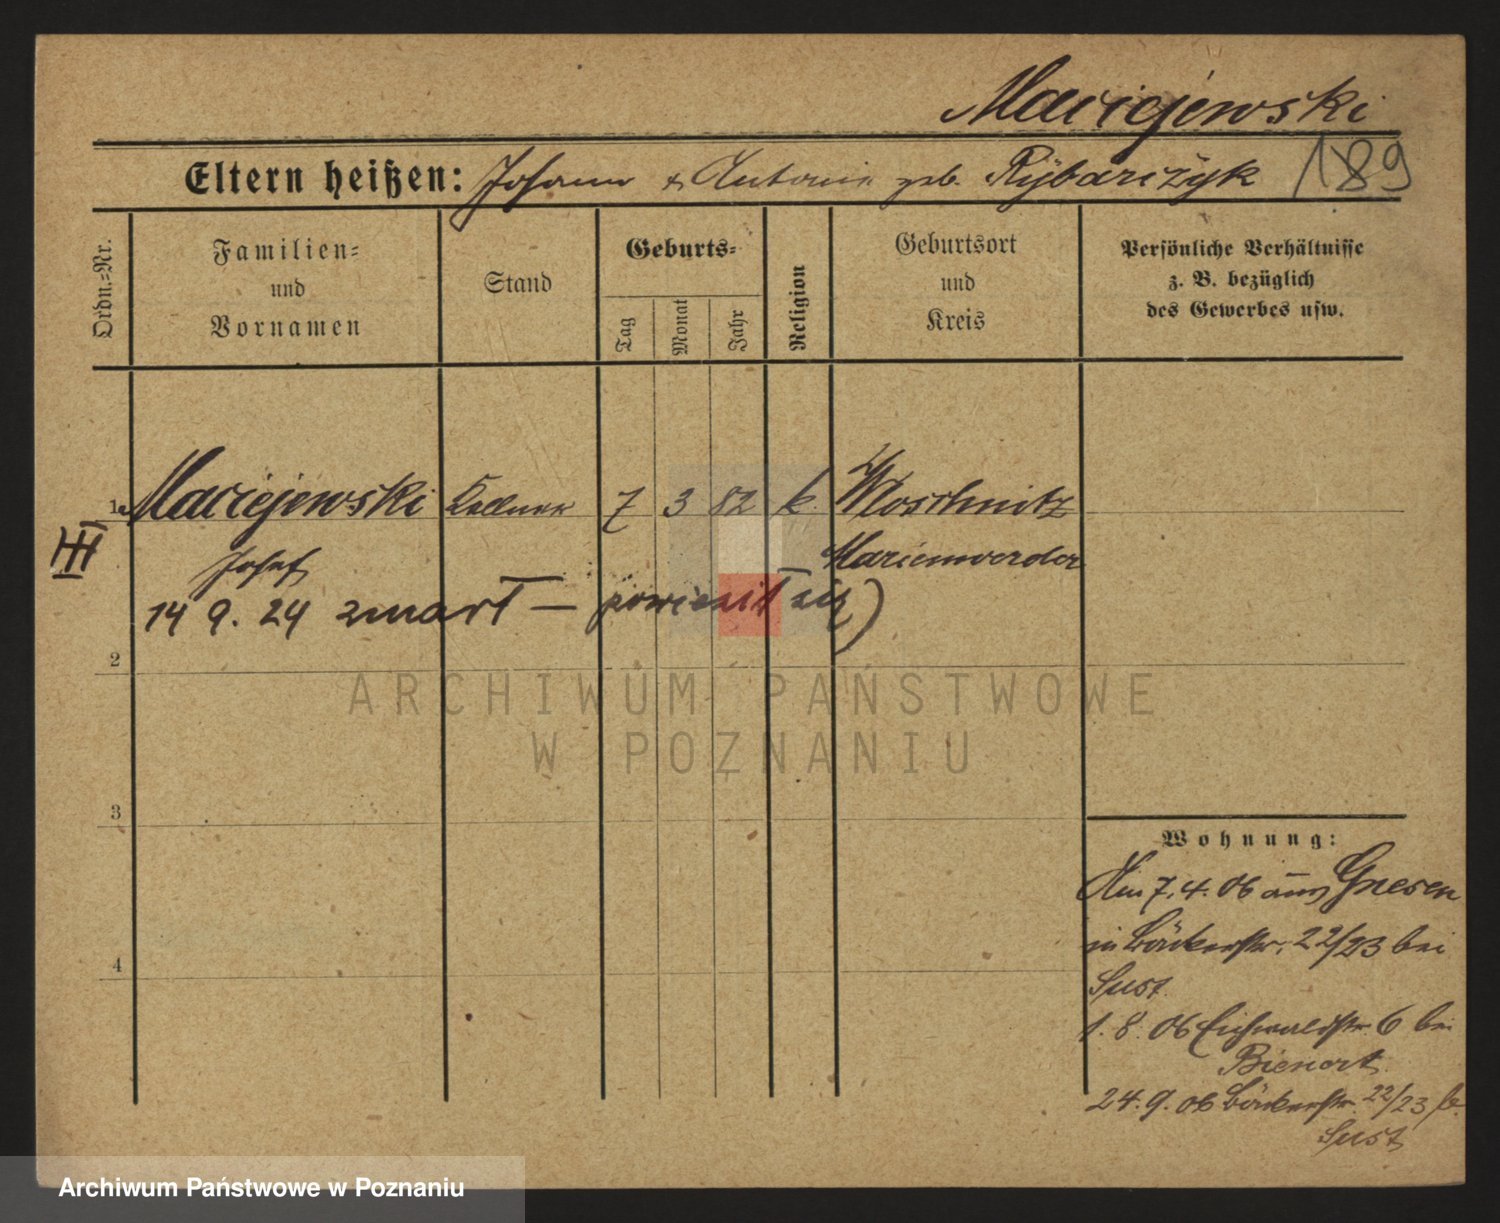 Maciejewski
Eltern heißen: Johann & Antonie geb. Rÿbarizÿk 189
Ordn.-Nr.
Familien-
und
Vornamen
Stand
Geburts-
Tag
Monat
Jahr
Religion
Geburtsort
und
Kreis
Persönliche Verhältnisse
z. B. bezüglich
des Gewerbes usw.
1 Maciejewski Kellner 7 3 82 k. Woschnitz
III
Josef Marienwerder
14 9. 24 zmarł — powiesił się)
2
ARCHIWUM PAŃSTWOWE
W POZNANIU
3
Wohnung:
Am 7.4.06 aus Gnesen
in Bäckerstr. 22/23 bei
Sust
1. 8. 06 Eichwaldstr. 6 bei
Bienert
4
24. 9. 06 Bäckerstr. 22/23 b.
Sust
Archiwum Państwowe w Poznaniu